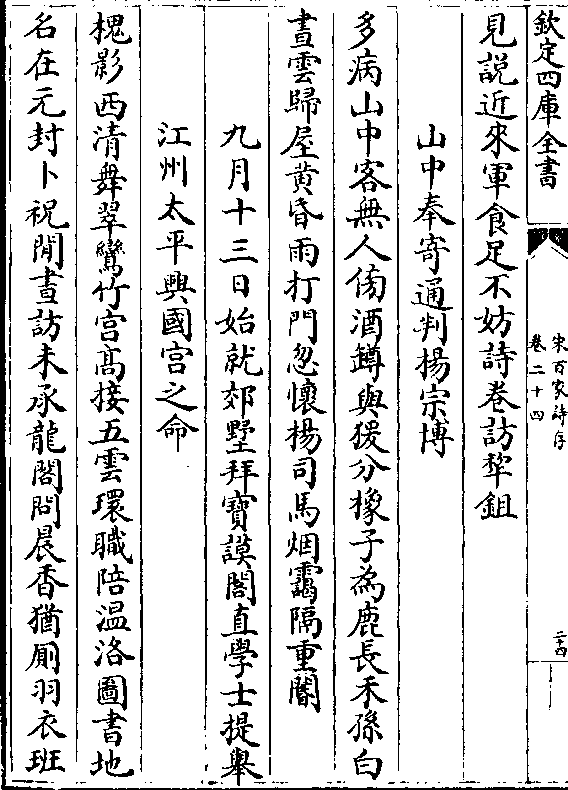 欽定四庫全書
宋百家詩存
卷二十四
二十四
見説近來軍食足不妨詩卷訪犂鉏
山中奉寄通判楊宗博
多病山中客無人倚酒罇與猨分橡子為鹿長禾孫白
晝雲歸屋黄昏雨打門忽懷楊司馬烟靄隔重閽
九月十三日始就郊墅拜寶謨閣直學士提舉
江州太平興國宫之命
槐影西清舞翠鸞竹宫髙接五雲環職陪温洛圖書地
名在元封卜祝間晝訪未承龍閣問晨香猶厠羽衣班